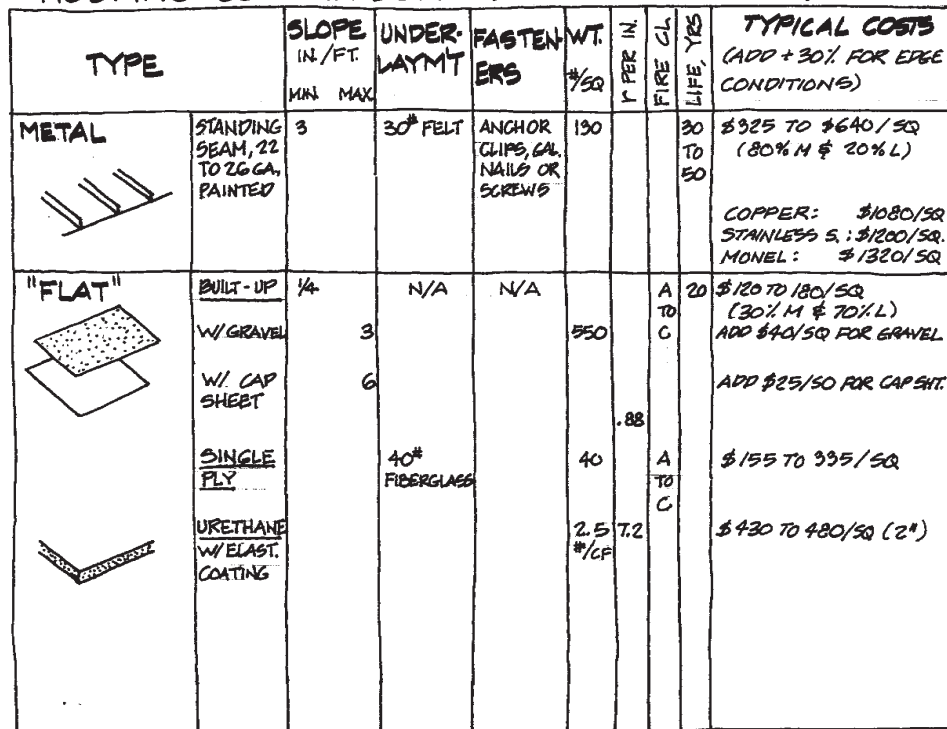 TYPE
SLOPE
IN./FT.
MIN. MAX.
UNDER-
LAYM'T
FASTEN-
ERS
WT.
#/SQ
r PER IN.
FIRE CL
LIFE, YRS
TYPICAL COSTS
(ADD +30% FOR EDGE
CONDITIONS)
METAL
STANDING
SEAM, 22
TO 26 GA.,
PAINTED
3
30# FELT
ANCHOR
CLIPS, GAL.
NAILS OR
SCREWS
130
30
TO
50
$325 TO $640/SQ
(80% M & 20% L)
COPPER: $1080/SQ
STAINLESS S.: $1200/SQ.
MONEL: $1320/SQ
"FLAT"
BUILT-UP
1/4
N/A
N/A
A
TO
C
20
$120 TO 180/SQ
(30% M & 70% L)
W/ GRAVEL
3
550
ADD $40/SQ FOR GRAVEL
W/ CAP
SHEET
6
ADD $25/SQ FOR CAP SHT.
.88
SINGLE
PLY
40#
FIBERGLASS
40
A
TO
C
$155 TO 335/SQ
URETHANE
W/ ELAST.
COATING
2.5
#/CF
7.2
$430 TO 480/SQ (2")